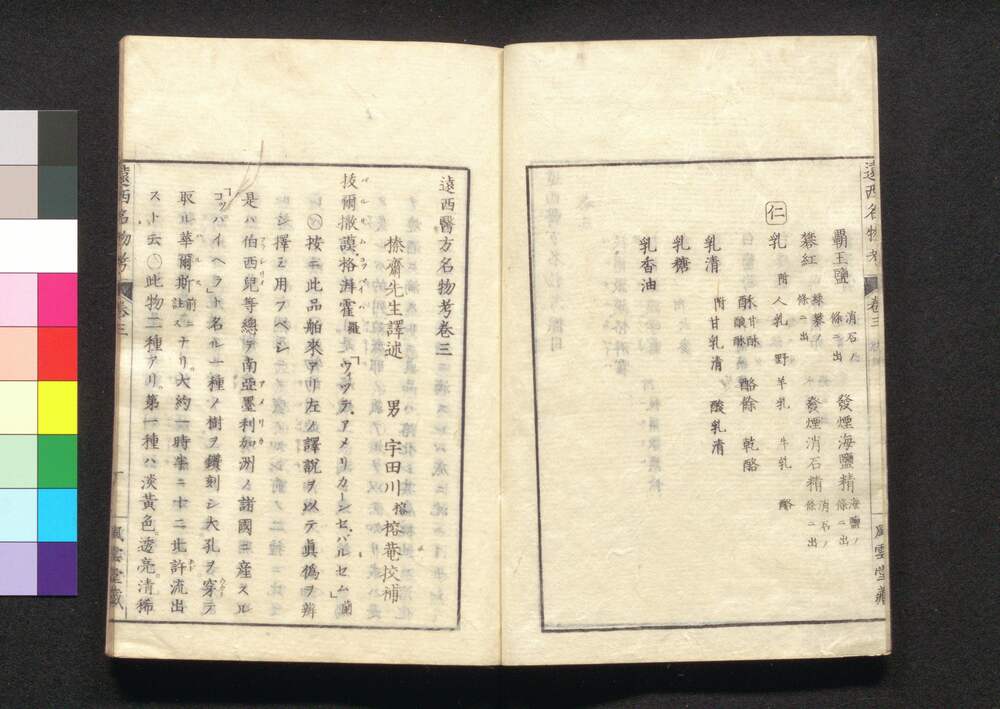 遠西名物考 卷三
覇王鹽 消石ノ條ニ出 發煙海鹽精 海鹽ノ條ニ出
發煙消石精 消石ノ條ニ出
仁
乳 附 人乳 野羊乳 牛乳 酪
酥 甘酥 酪餘 乾酪
乳清 附 甘乳清 酸乳清
乳糖
乳香油
風雲堂藏
遠西醫方名物考卷三
榛齋先生譯述 男 宇田川榕 榕菴挍補
拔爾撒謨格湃霍 羅 「ウヮラテ、アメリカーンセ、バルセム」蘭
按ニ此品舶來アリ左ノ譯說ヲ以テ眞僞ヲ辨
シ擇ミ用フベシ
是ハ伯西兒等總テ南亞墨利加洲ノ諸國ニ産スル
「コッパイヘラト名ル一種ノ樹ヲ鑽刻シ大孔ヲ穿テ
取ル華爾斯 前ニ註ス ナリ。大約一時半ニ十二北許流出
スト云 此物二種アリ。第一種ハ淡黃色。透亮。清稀
遠西名物考 卷三
風雲堂藏